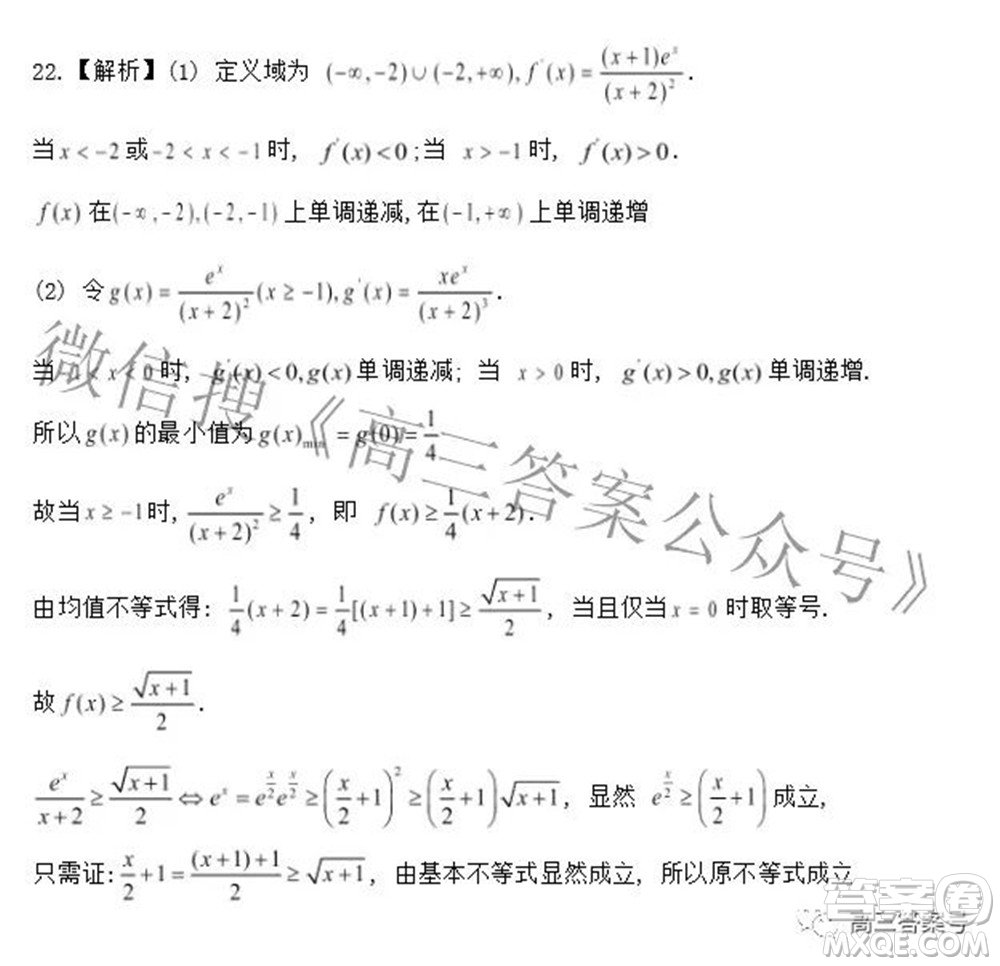 22.【解析】(1) 定义域为 (-∞,-2)∪(-2,+∞), f'(x)=\frac{(x+1)e^x}{(x+2)^2}.
当x<-2或-2<x<-1时, f'(x)<0;当 x>-1时, f'(x)>0.
f(x)在(-∞,-2),(-2,-1)上单调递减,在(-1,+∞)上单调递增
(2) 令g(x)=\frac{e^x}{(x+2)^2}(x≥-1), g'(x)=\frac{xe^x}{(x+2)^3}.
当 x<0时, g'(x)<0,g(x)单调递减; 当 x>0时, g'(x)>0,g(x)单调递增.
所以g(x)的最小值为g(x)_{min}=g(0)=\frac{1}{4}
故当x≥-1时, \frac{e^x}{(x+2)^2}≥\frac{1}{4}, 即 f(x)≥\frac{1}{4}(x+2).
由均值不等式得: \frac{1}{4}(x+2)=\frac{1}{4}[(x+1)+1]≥\frac{\sqrt{x+1}}{2}, 当且仅当x=0时取等号.
故f(x)≥\frac{\sqrt{x+1}}{2}.
\frac{e^x}{x+2}≥\frac{\sqrt{x+1}}{2}⇔e^x=e^{\frac{x}{2}}e^{\frac{x}{2}}≥(\frac{x}{2}+1)^2≥(\frac{x}{2}+1)\sqrt{x+1}, 显然 e^{\frac{x}{2}}≥(\frac{x}{2}+1)成立,
只需证: \frac{x}{2}+1=\frac{(x+1)+1}{2}≥\sqrt{x+1}, 由基本不等式显然成立, 所以原不等式成立
微信搜《高三答案公众号》
高三答案号
答案圈
MXQE.COM